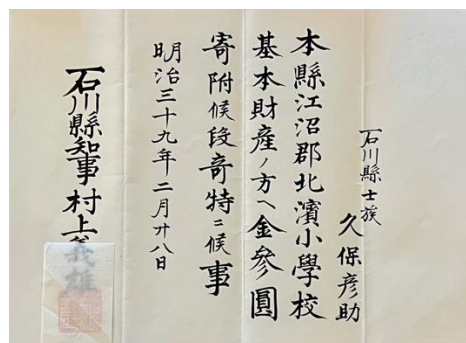 石川縣士族
久保彦助
本縣江沼郡北濱小學校
基本財產ノ方ヘ金參圓
寄附候段奇特ニ候事
明治三十九年二月廿八日
石川縣知事村上義雄